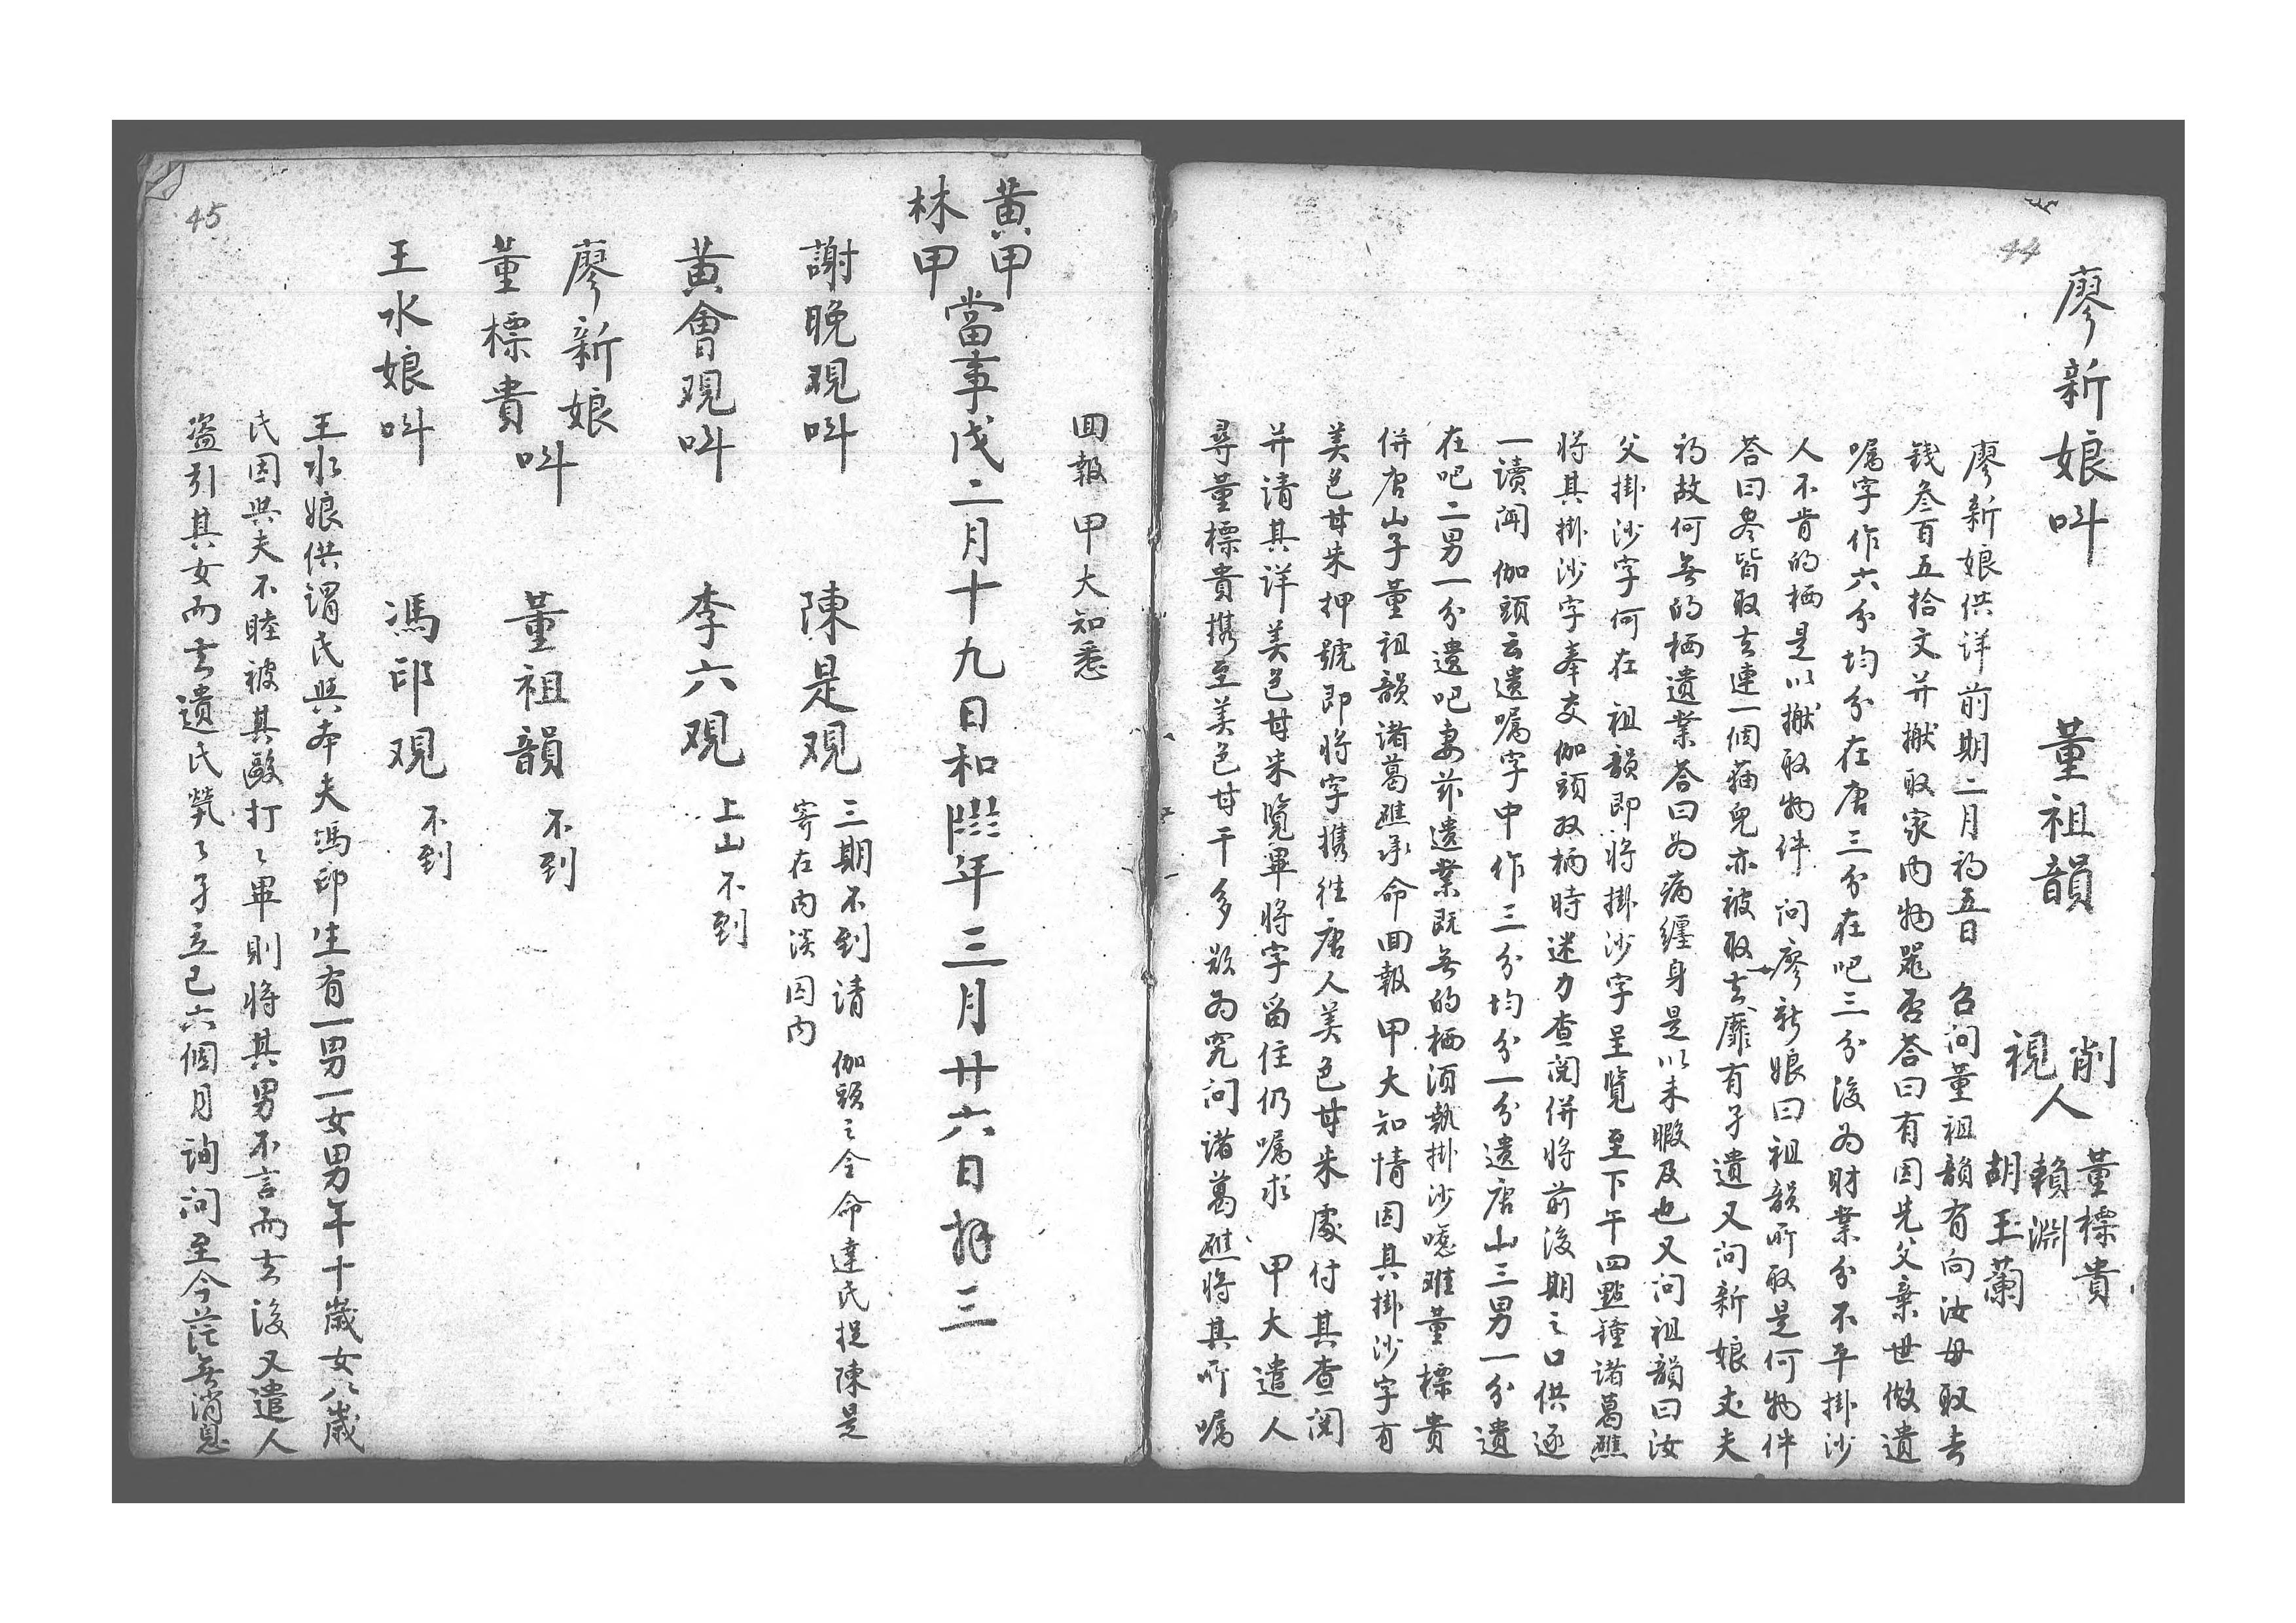 44
廖新娘叫 董祖韻 削視人 董標貴 賴淵 胡玉蘭
廖新娘供詳前期二月初五日 召問董祖韻有向汝母取去
錢叁百五拾文并搬取家內物器否答曰有因先父棄世做遺
囑字作六分均分在唐三分在吧三分後為財業分不平掛沙
人不肯的栖是以搬取物件 问廖新娘曰祖韻所取是何物件
答曰叅皆取去連一個猫兒亦被取去靡有孑遺又问新娘丈夫
初故何無的栖遺業答曰為病纏身是以未暇及也又问祖韻曰汝
父掛沙字何在 祖韻即将掛沙字呈覽至下午四點鐘诸葛礁
将其掛沙字奉交伽頭双柄時迷力查閱併将前後期之口供逐
一讀闻 伽頭云遺囑字中作三分均分一分遺唐山三男一分遺
在吧二男一分遺吧妻茲遺業既無的栖須執掛沙嘧雖董標貴
併唐山子董祖韻诸葛礁承命回報 甲大知情因其掛沙字有
美色甘朱押號即将字携往唐人美色甘朱處付其查閱
并请其详美色甘朱覽畢将字留住仍嘱求 甲大遣人
尋董標貴携至美色甘干多欵為究问诸葛礁将其所嘱
回報 甲大知悉
黃甲 林甲 當事戊二月十九日和 年三月廿六日拜三
謝晚观叫 陳是观 三期不到请 伽頭之令命達氏捉陳是
寄在内淡囚内
黃會观叫 李六观 上山不到
廖新娘 董標貴 叫 董祖韻 不到
王水娘叫 馮印观 不到
王水娘供谓氏與本夫馮印生有一男一女男年十歲女八歲
氏因與夫不睦被其毆打〻畢則将其男不言而去後又遣人
盗引其女而去遺氏煢〻孑立已六個月詢问至今茫無消息
45